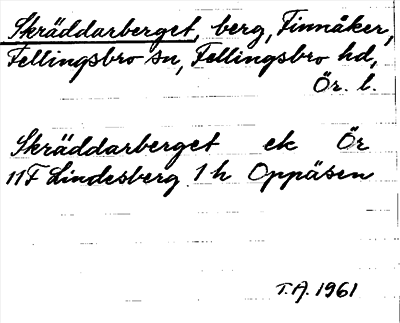 Skräddarberget, berg, Finnåker,
Fellingsbro sn, Fellingsbro hd,
Ör. l.
Skräddarberget ek Ör
11F Lindesberg 1 h Oppåsen
T.A. 1961